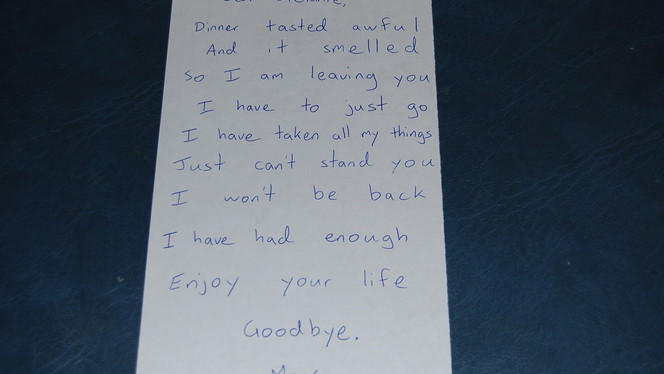 Dinner tasted awful
And it smelled
So I am leaving you
I have to just go
I have taken all my things
Just can't stand you
I won't be back
I have had enough
Enjoy your life
Goodbye.